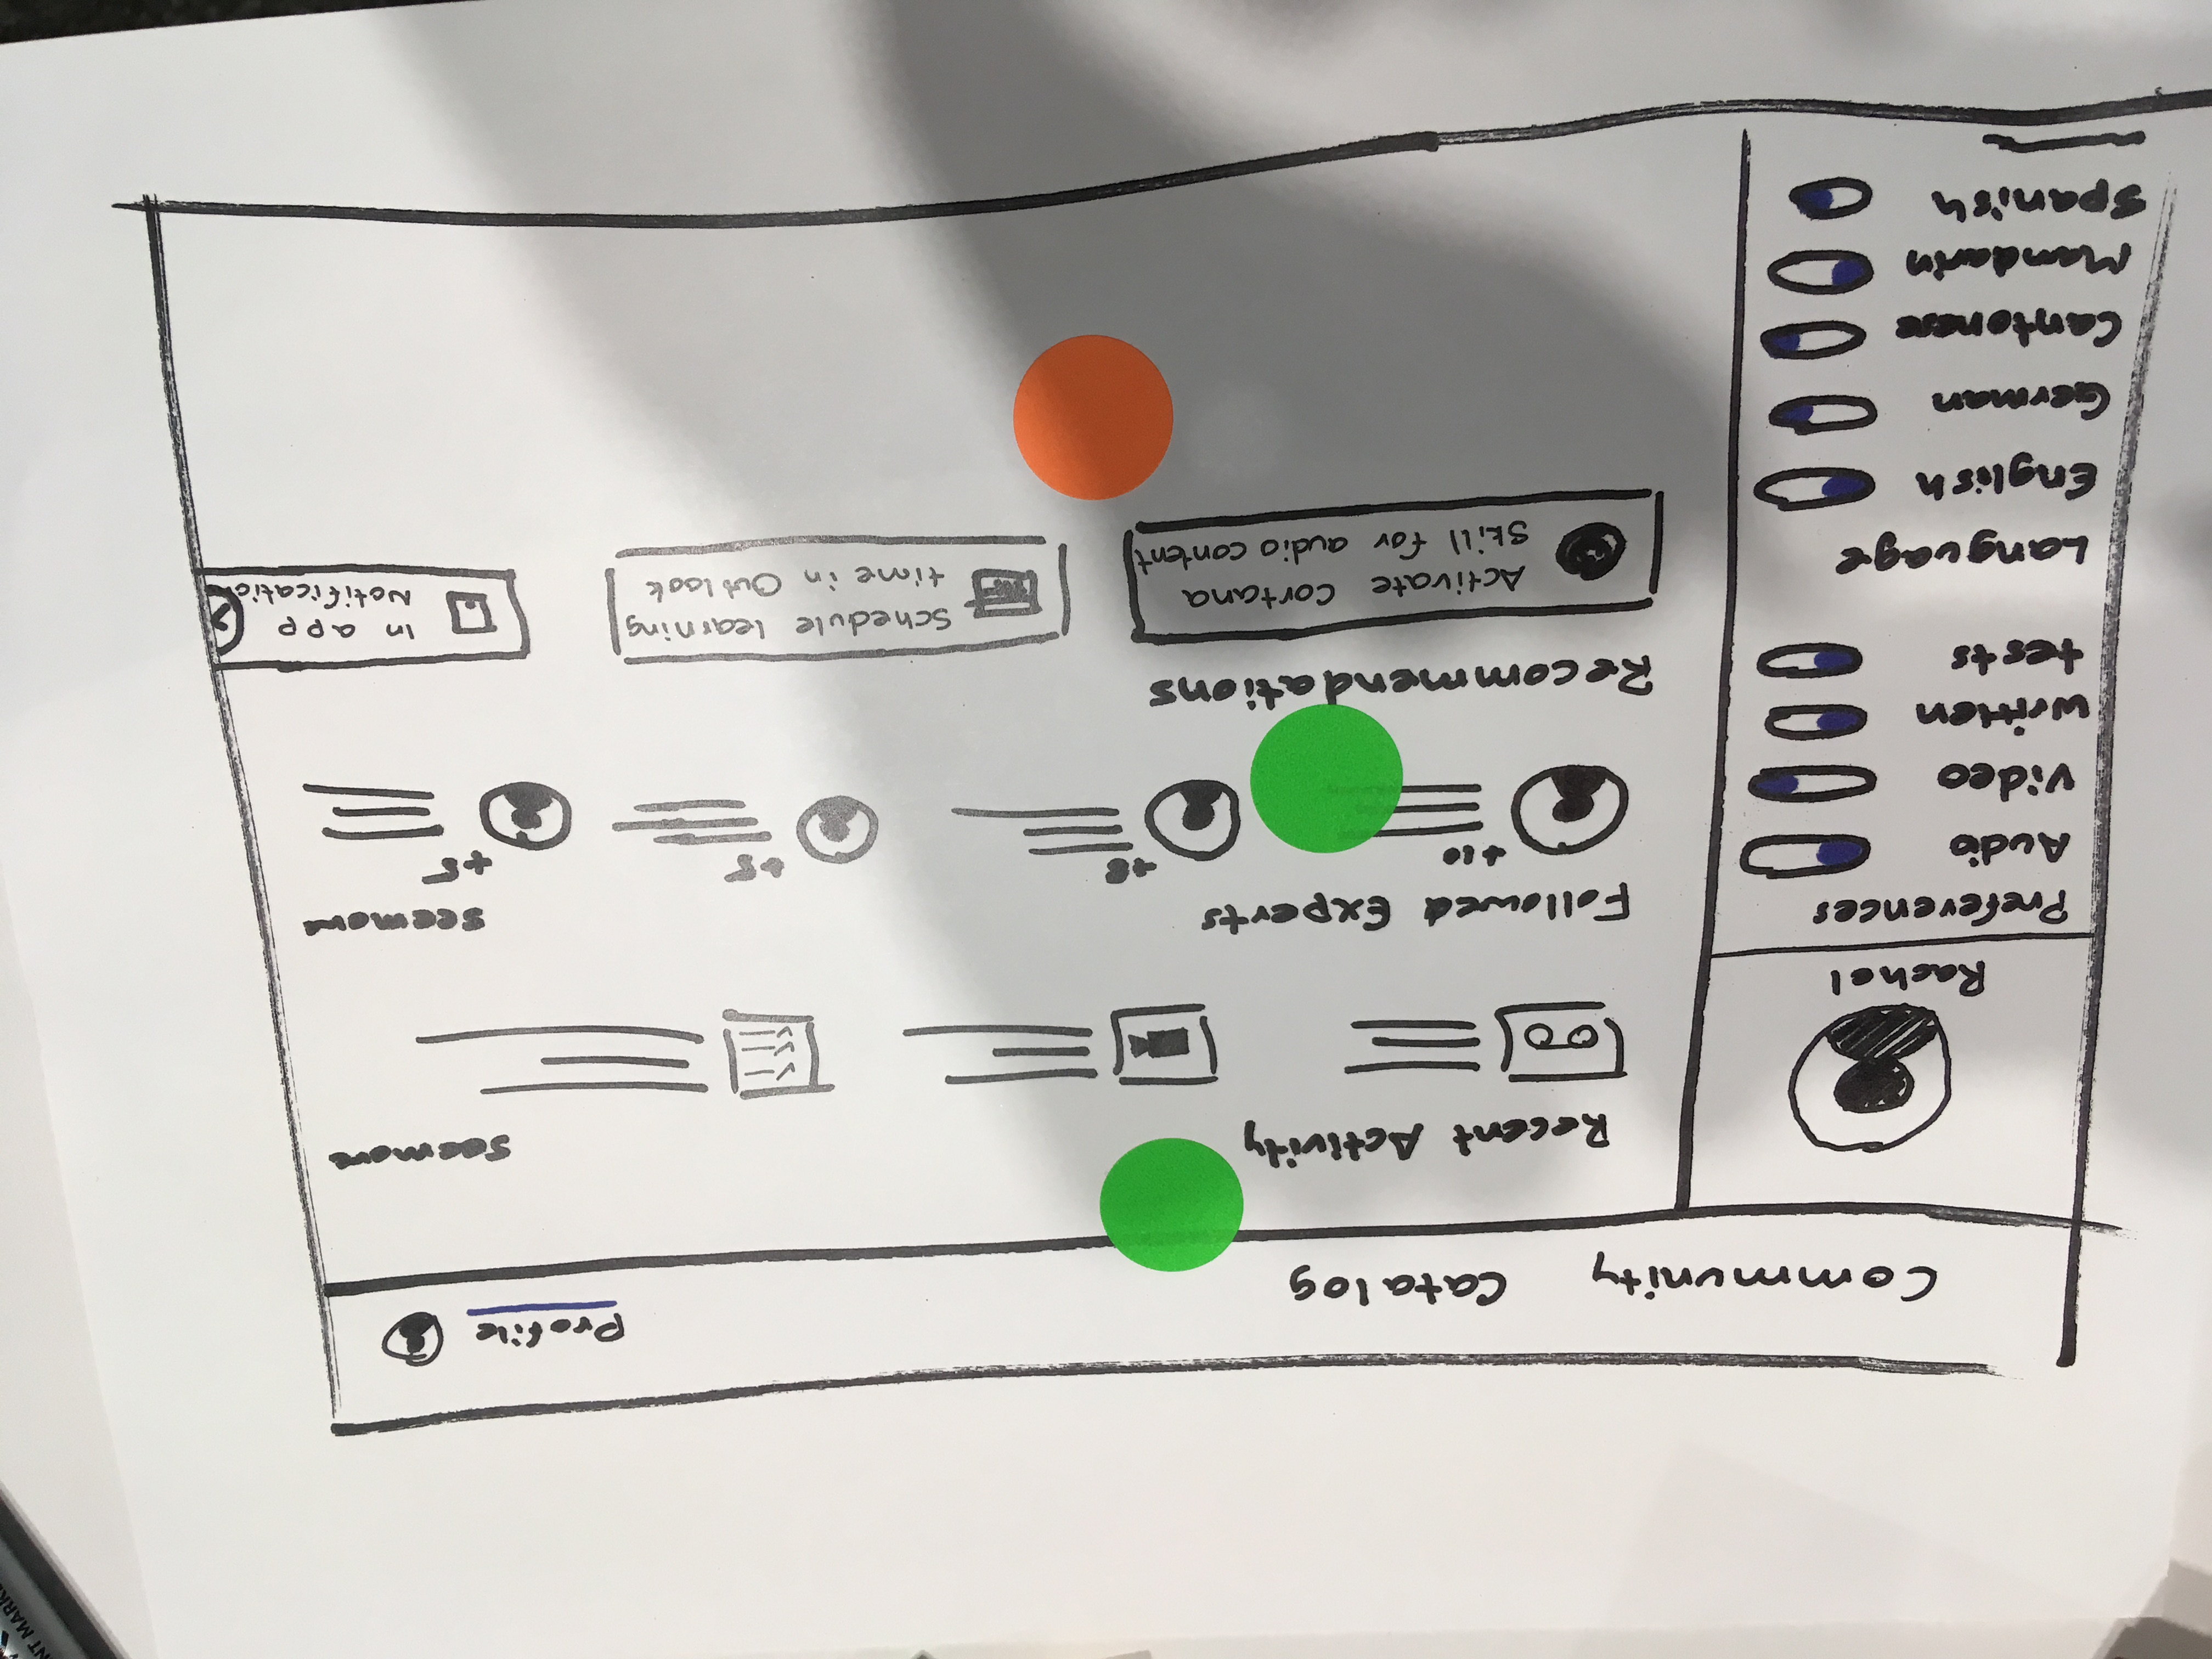 NT MARK
Community Catalog Profile
Rachel
Preferences
Audio
Video
written
tests
Language
English
German
Cantonese
Mandarin
Spanish
Recent Activity seemore
Followed Experts seemore
+10 +8 +5 +5
Recommendations
Activate Cortana
skill for audio content
Schedule learning
time in Outlook
In app
Notification